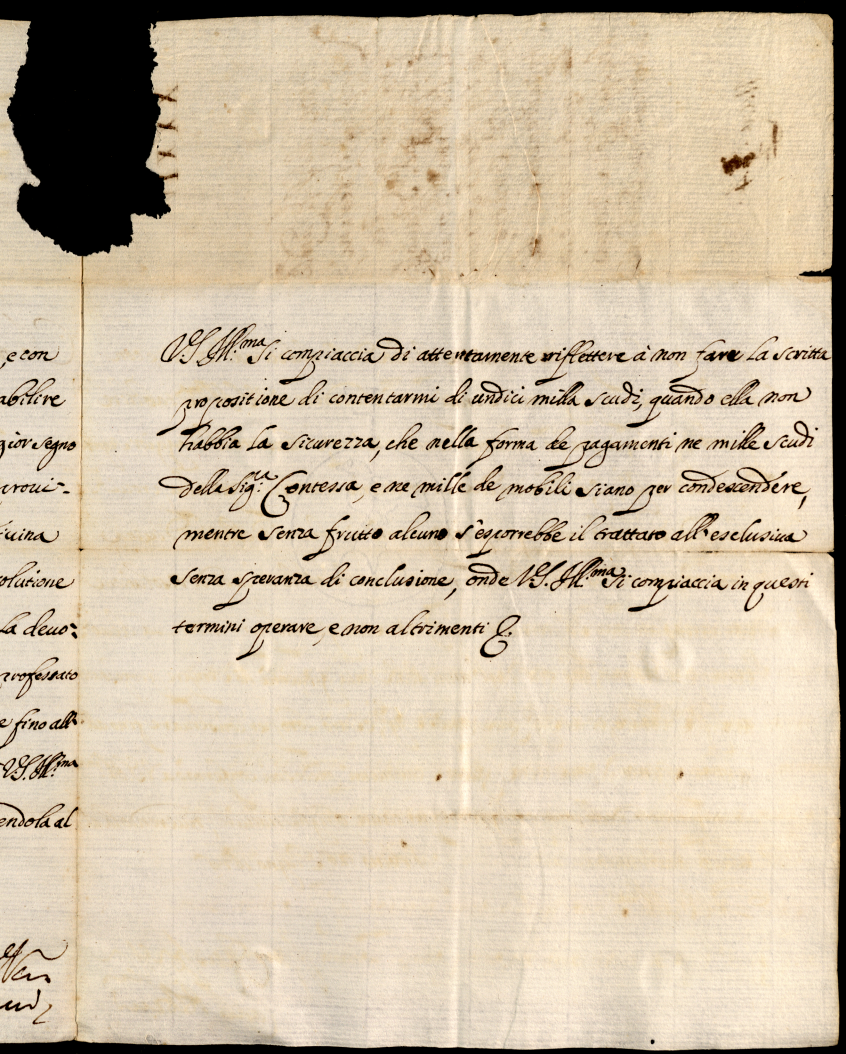 , e con
abilire
gior segno
prove-
fuina
olutione
la deuo:
professato
e fino all'
VS. Ill.ma
endola al
VS. Ill.ma si compiaccia di attentamente riflettere à non fare la scritta
propositione di contentarmi di undici milla scudi, quando ella non
habbia la sicurezza, che nella forma de pagamenti ne mille scudi
della Sig.ra Contessa, e ne mille de mobili siano per condescendere,
mentre senza frutto alcuno s'esporrebbe il trattato all'esclusiva
senza speranza di conclusione, onde VS. Ill.ma si compiaccia in questi
termini operare, e non altrimenti &